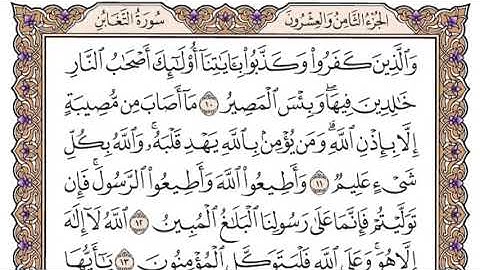 الجزء الثامن والعشرون
سورة التغابن
وَٱلَّذِينَ كَفَرُوا۟ وَكَذَّبُوا۟ بِـَٔايَـٰتِنَآ أُو۟لَـٰٓئِكَ أَصْحَـٰبُ ٱلنَّارِ
خَـٰلِدِينَ فِيهَا ۖ وَبِئْسَ ٱلْمَصِيرُ ١٠ مَآ أَصَابَ مِن مُّصِيبَةٍ
إِلَّا بِإِذْنِ ٱللَّهِ ۗ وَمَن يُؤْمِنۢ بِٱللَّهِ يَهْدِ قَلْبَهُۥ ۚ وَٱللَّهُ بِكُلِّ
شَىْءٍ عَلِيمٌ ١١ وَأَطِيعُوا۟ ٱللَّهَ وَأَطِيعُوا۟ ٱلرَّسُولَ ۚ فَإِن
تَوَلَّيْتُمْ فَإِنَّمَا عَلَىٰ رَسُولِنَا ٱلْبَلَـٰغُ ٱلْمُبِينُ ١٢ ٱللَّهُ لَآ إِلَـٰهَ
إِلَّا هُوَ ۚ وَعَلَى ٱللَّهِ فَلْيَتَوَكَّلِ ٱلْمُؤْمِنُونَ ١٣ يَـٰٓأَيُّهَا